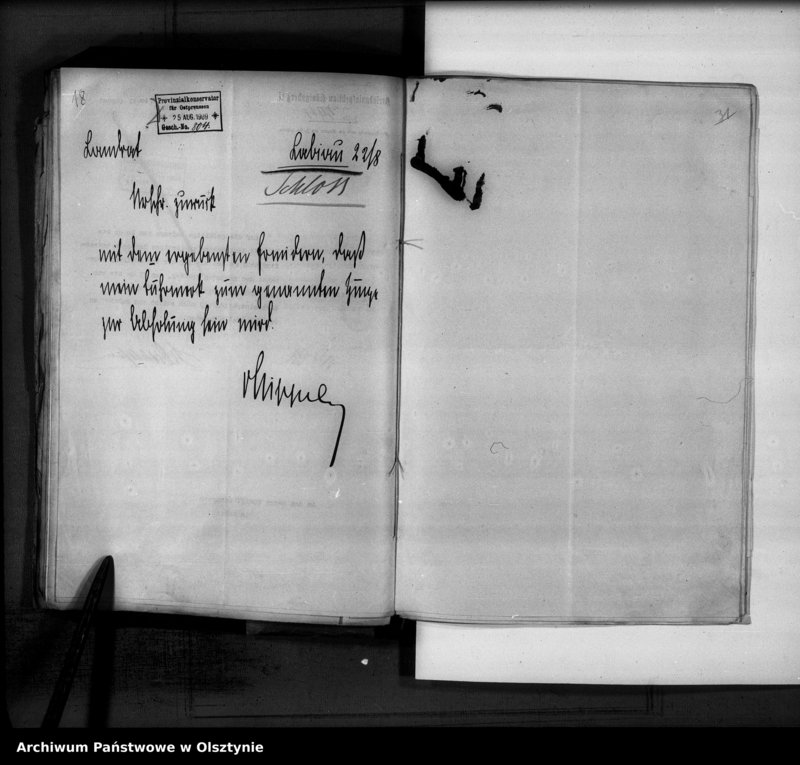 18
Provinzialkonservator
für Ostpreussen
25 AUG. 1909
Gesch.-No. 804.
Landrat
Labiau 22/8
Schloss
Urschr. zurück
mit dem ergebensten Erwidern, daß
mein Fuhrwerk zum genannten Zuge
zur Abholung sein wird.
31
Archiwum Państwowe w Olsztynie